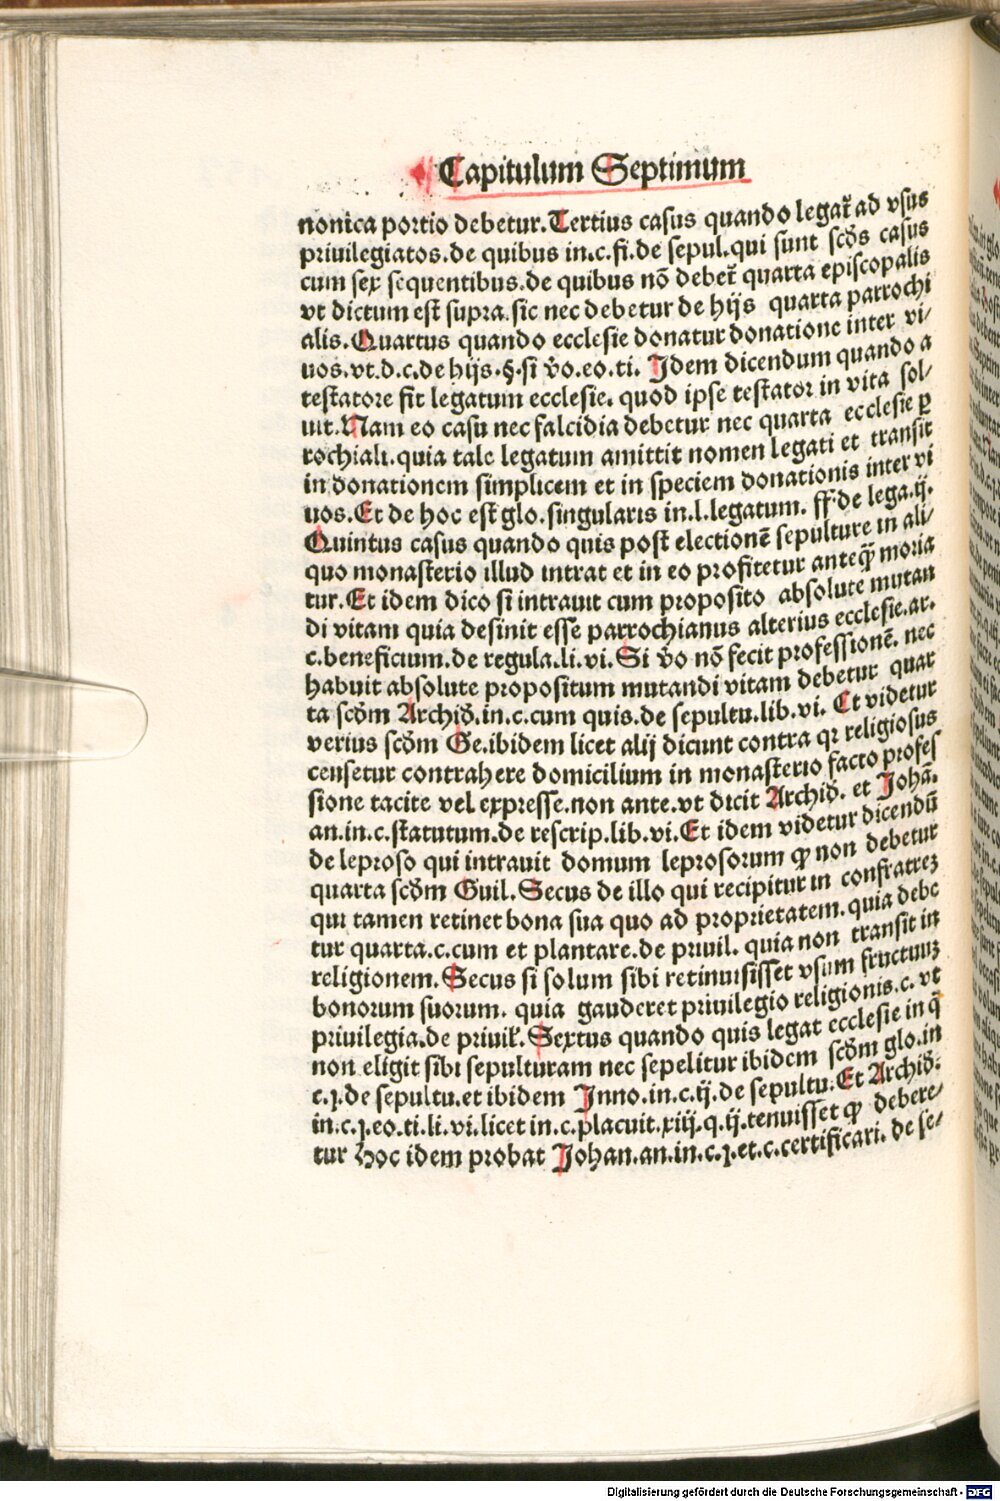 Capitulum Septimum
nonica portio debetur. Tertius casus quando legat̃ ad vsus
priuilegiatos. de quibus in. c. fi. de sepul. qui sunt scd̄s casus
cum sex sequentibus. de quibus nō debet̃ quarta episcopalis
vt dictum est supra. sic nec debetur de hijs quarta parrochi
alis. Quartus quando ecclesie donatur donatione inter vi/
uos. vt. d. c. de hijs. §. si v̄o. eo. ti. Idem dicendum quando a
testatore fit legatum ecclesie. quod ipse testator in vita sol/
uit. Nam eo casu nec falcidia debetur nec quarta ecclesie ꝑ
rochiali. quia tale legatum amittit nomen legati et transit
in donationem simplicem et in speciem donationis inter vi
uos. Et de hoc est glo. singularis in. l. legatum. ff. de lega. ij.
Quintus casus quando quis post electionē sepulture in ali/
quo monasterio illud intrat et in eo profitetur anteq̄ꝫ moria
tur. Et idem dico si intrauit cum proposito absolute mutan
di vitam quia desinit esse parrochianus alterius ecclesie. ar.
c. beneficium. de regula. li. vi. Si v̄o nō fecit professionē. nec
habuit absolute propositum mutandi vitam debetur quar
ta scd̄m Archid̄. in. c. cum quis. de sepultu. lib. vi. Et videtur
verius scd̄m Ge. ibidem licet alij dicunt contra qꝛ religiosus
censetur contrahere domicilium in monasterio facto profes
sione tacite vel expresse. non ante. vt dicit Archid̄. et Johā.
an. in. c. statutum. de rescrip. lib. vi. Et idem videtur dicendū
de leproso qui intrauit domum leprosorum ꝙ non debetur
quarta scd̄m Guil. Secus de illo qui recipitur in confratreꝫ
qui tamen retinet bona sua quo ad proprietatem. quia debe
tur quarta. c. cum et plantare. de priuil. quia non transit in
religionem. Secus si solum sibi retinuisisset vsum fructuuꝫ
bonorum suorum. quia gauderet priuilegio religionis. c. vt
priuilegia. de priuil̄. Sextus quando quis legat ecclesie in q̄
non eligit sibi sepulturam nec sepelitur ibidem scd̄m glo. in
c. j. de sepultu. et ibidem Inno. in. c. ij. de sepultu. Et Archid̄.
in. c. j. eo. ti. li. vi. licet in. c. placuit. xiij. q. ij. tenuisset ꝙ debere/
tur Hoc idem probat Johan. an. in. c. j. et. c. certificari. de se/
Digitalisierung gefördert durch die Deutsche Forschungsgemeinschaft - DFG